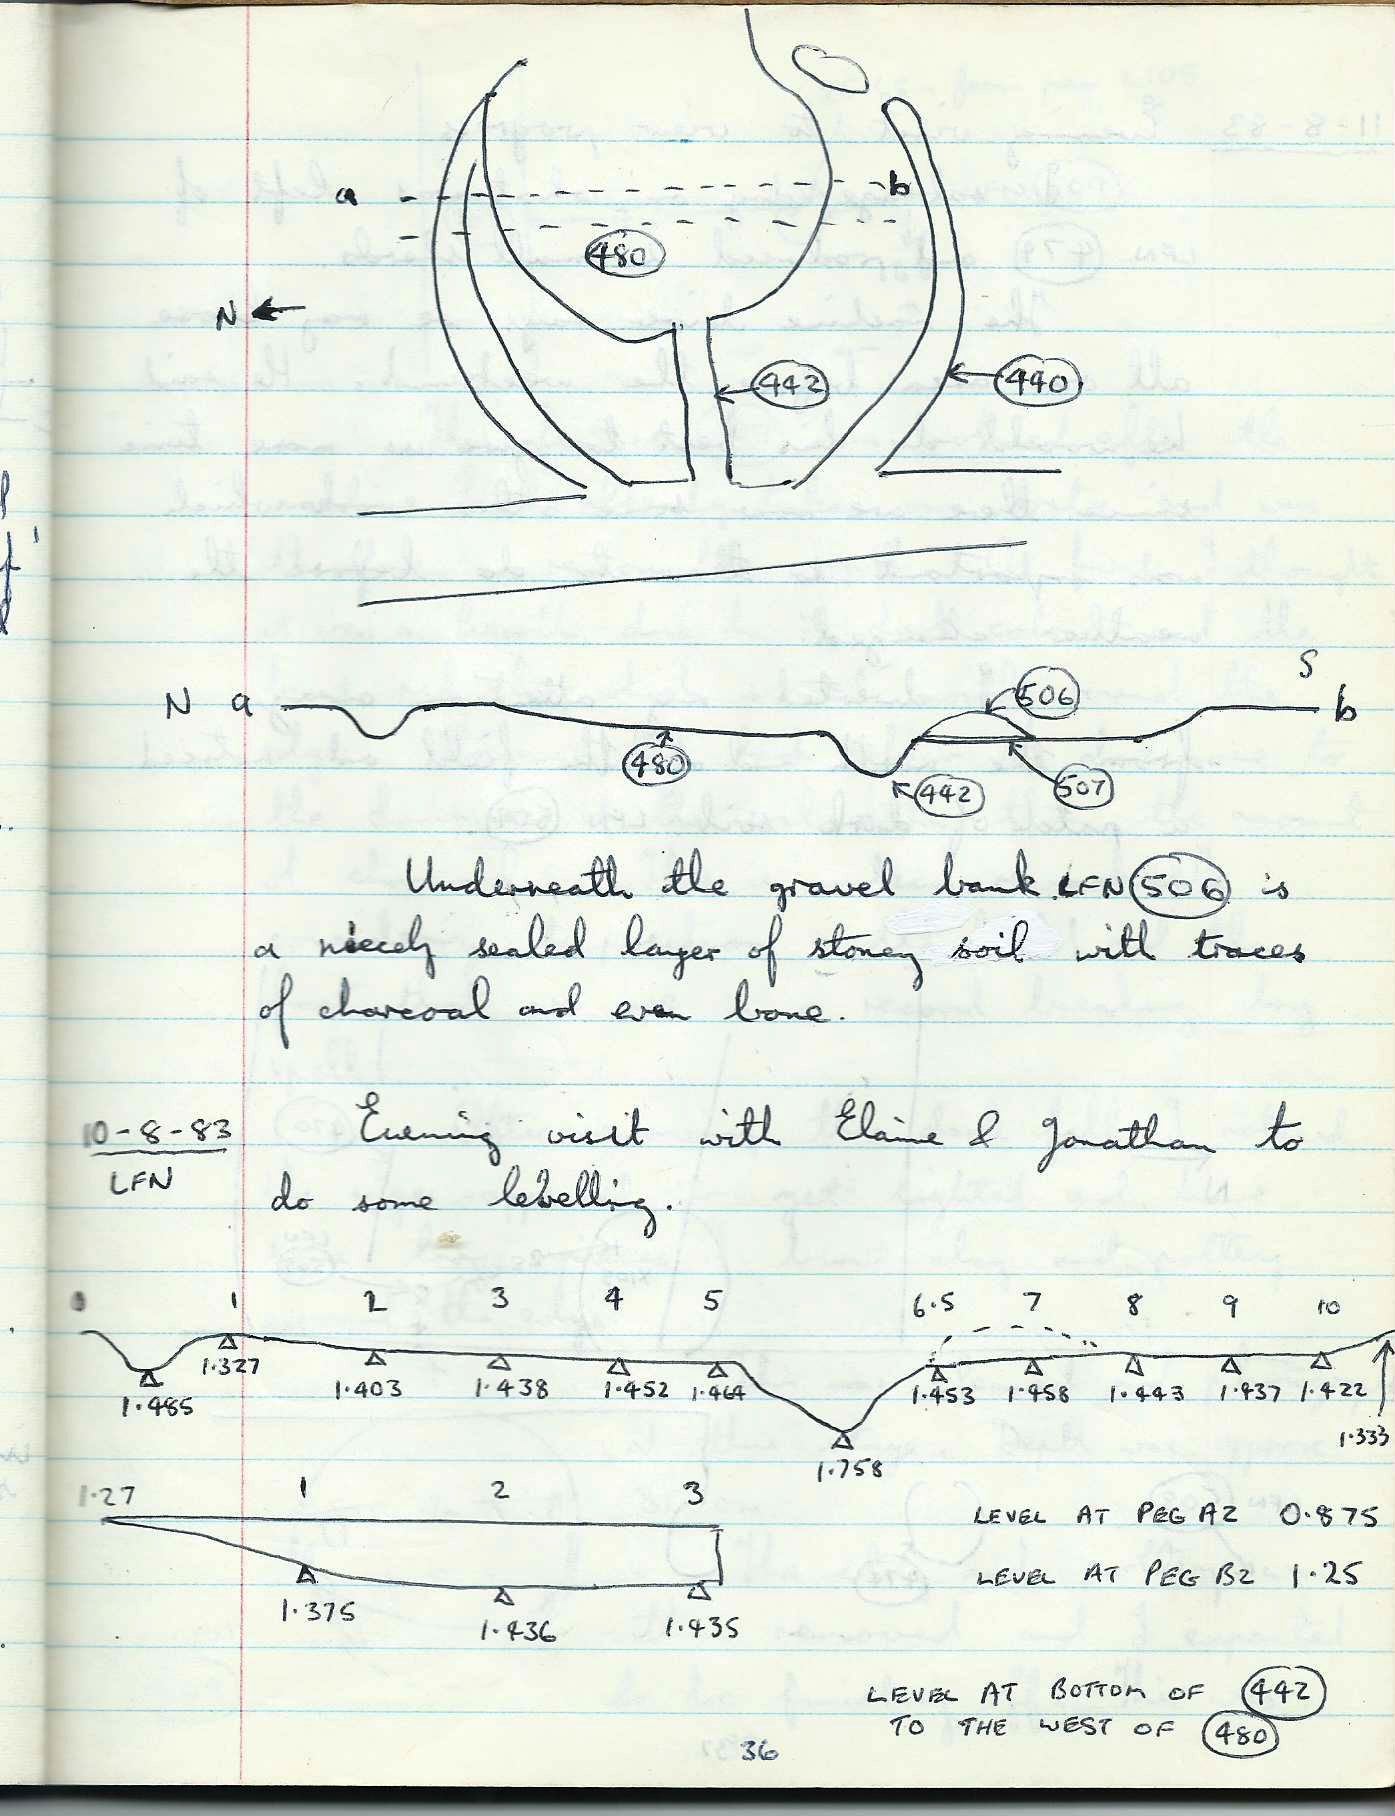 a b
480
N
442 440
S
N a 506 b
480 442 507
Underneath the gravel bank LFN 506 is
a niecely sealed layer of stoney soil with traces
of charcoal and even bone.
10-8-83 Evening visit with Elaine & Jonathan to
LFN
do some levelling.
0 1 2 3 4 5 6.5 7 8 9 10
1.485 1.327 1.403 1.438 1.452 1.464 1.758 1.453 1.458 1.443 1.437 1.422 1.333
1.27 1 2 3
LEVEL AT PEG A2 0.875
LEVEL AT PEG B2 1.25
1.375 1.436 1.435
LEVEL AT BOTTOM OF 442
TO THE WEST OF 480
36